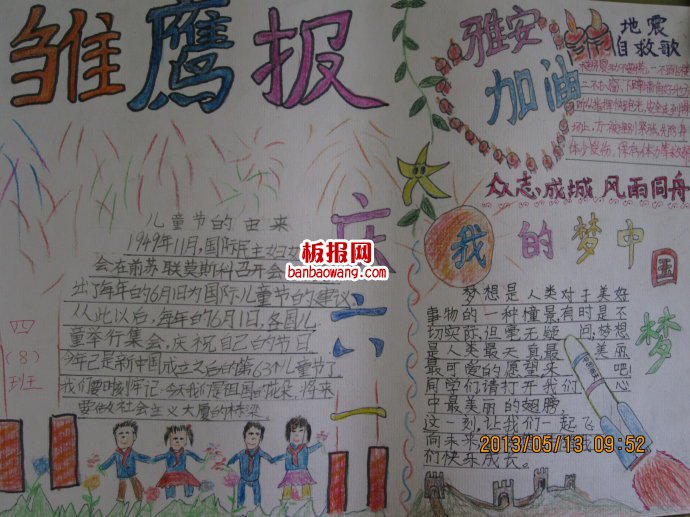 雏鹰报
儿童节的由来
1949年11月,国际民主妇
会在前苏联莫斯科召开会
出了每年的6月1日为国际儿童节的建议
从此以后,每年的6月1日,各国儿
童举行集会,庆祝自己的节日
今年已是新中国成立之后的第63个儿童节了
我们要时刻牢记:今天我们是祖国的花朵,将来
要做社会主义大厦的栋梁
四
(8)
班
庆
六
一
板报网
banbaowang.com
雅安
加油
地震
自救歌
众志成城 风雨同舟
我的梦中国梦
梦想是人类对于美好
事物的一种憧景,有时是不
切实际,但毫无疑问,梦想
是人类最天真最美丽
最可爱的愿望来吧!
同学们请打开我们心
中最美丽的翅膀
这一刻,让我们一起飞
向未来
们快乐成长。
2013/05/13 09:52